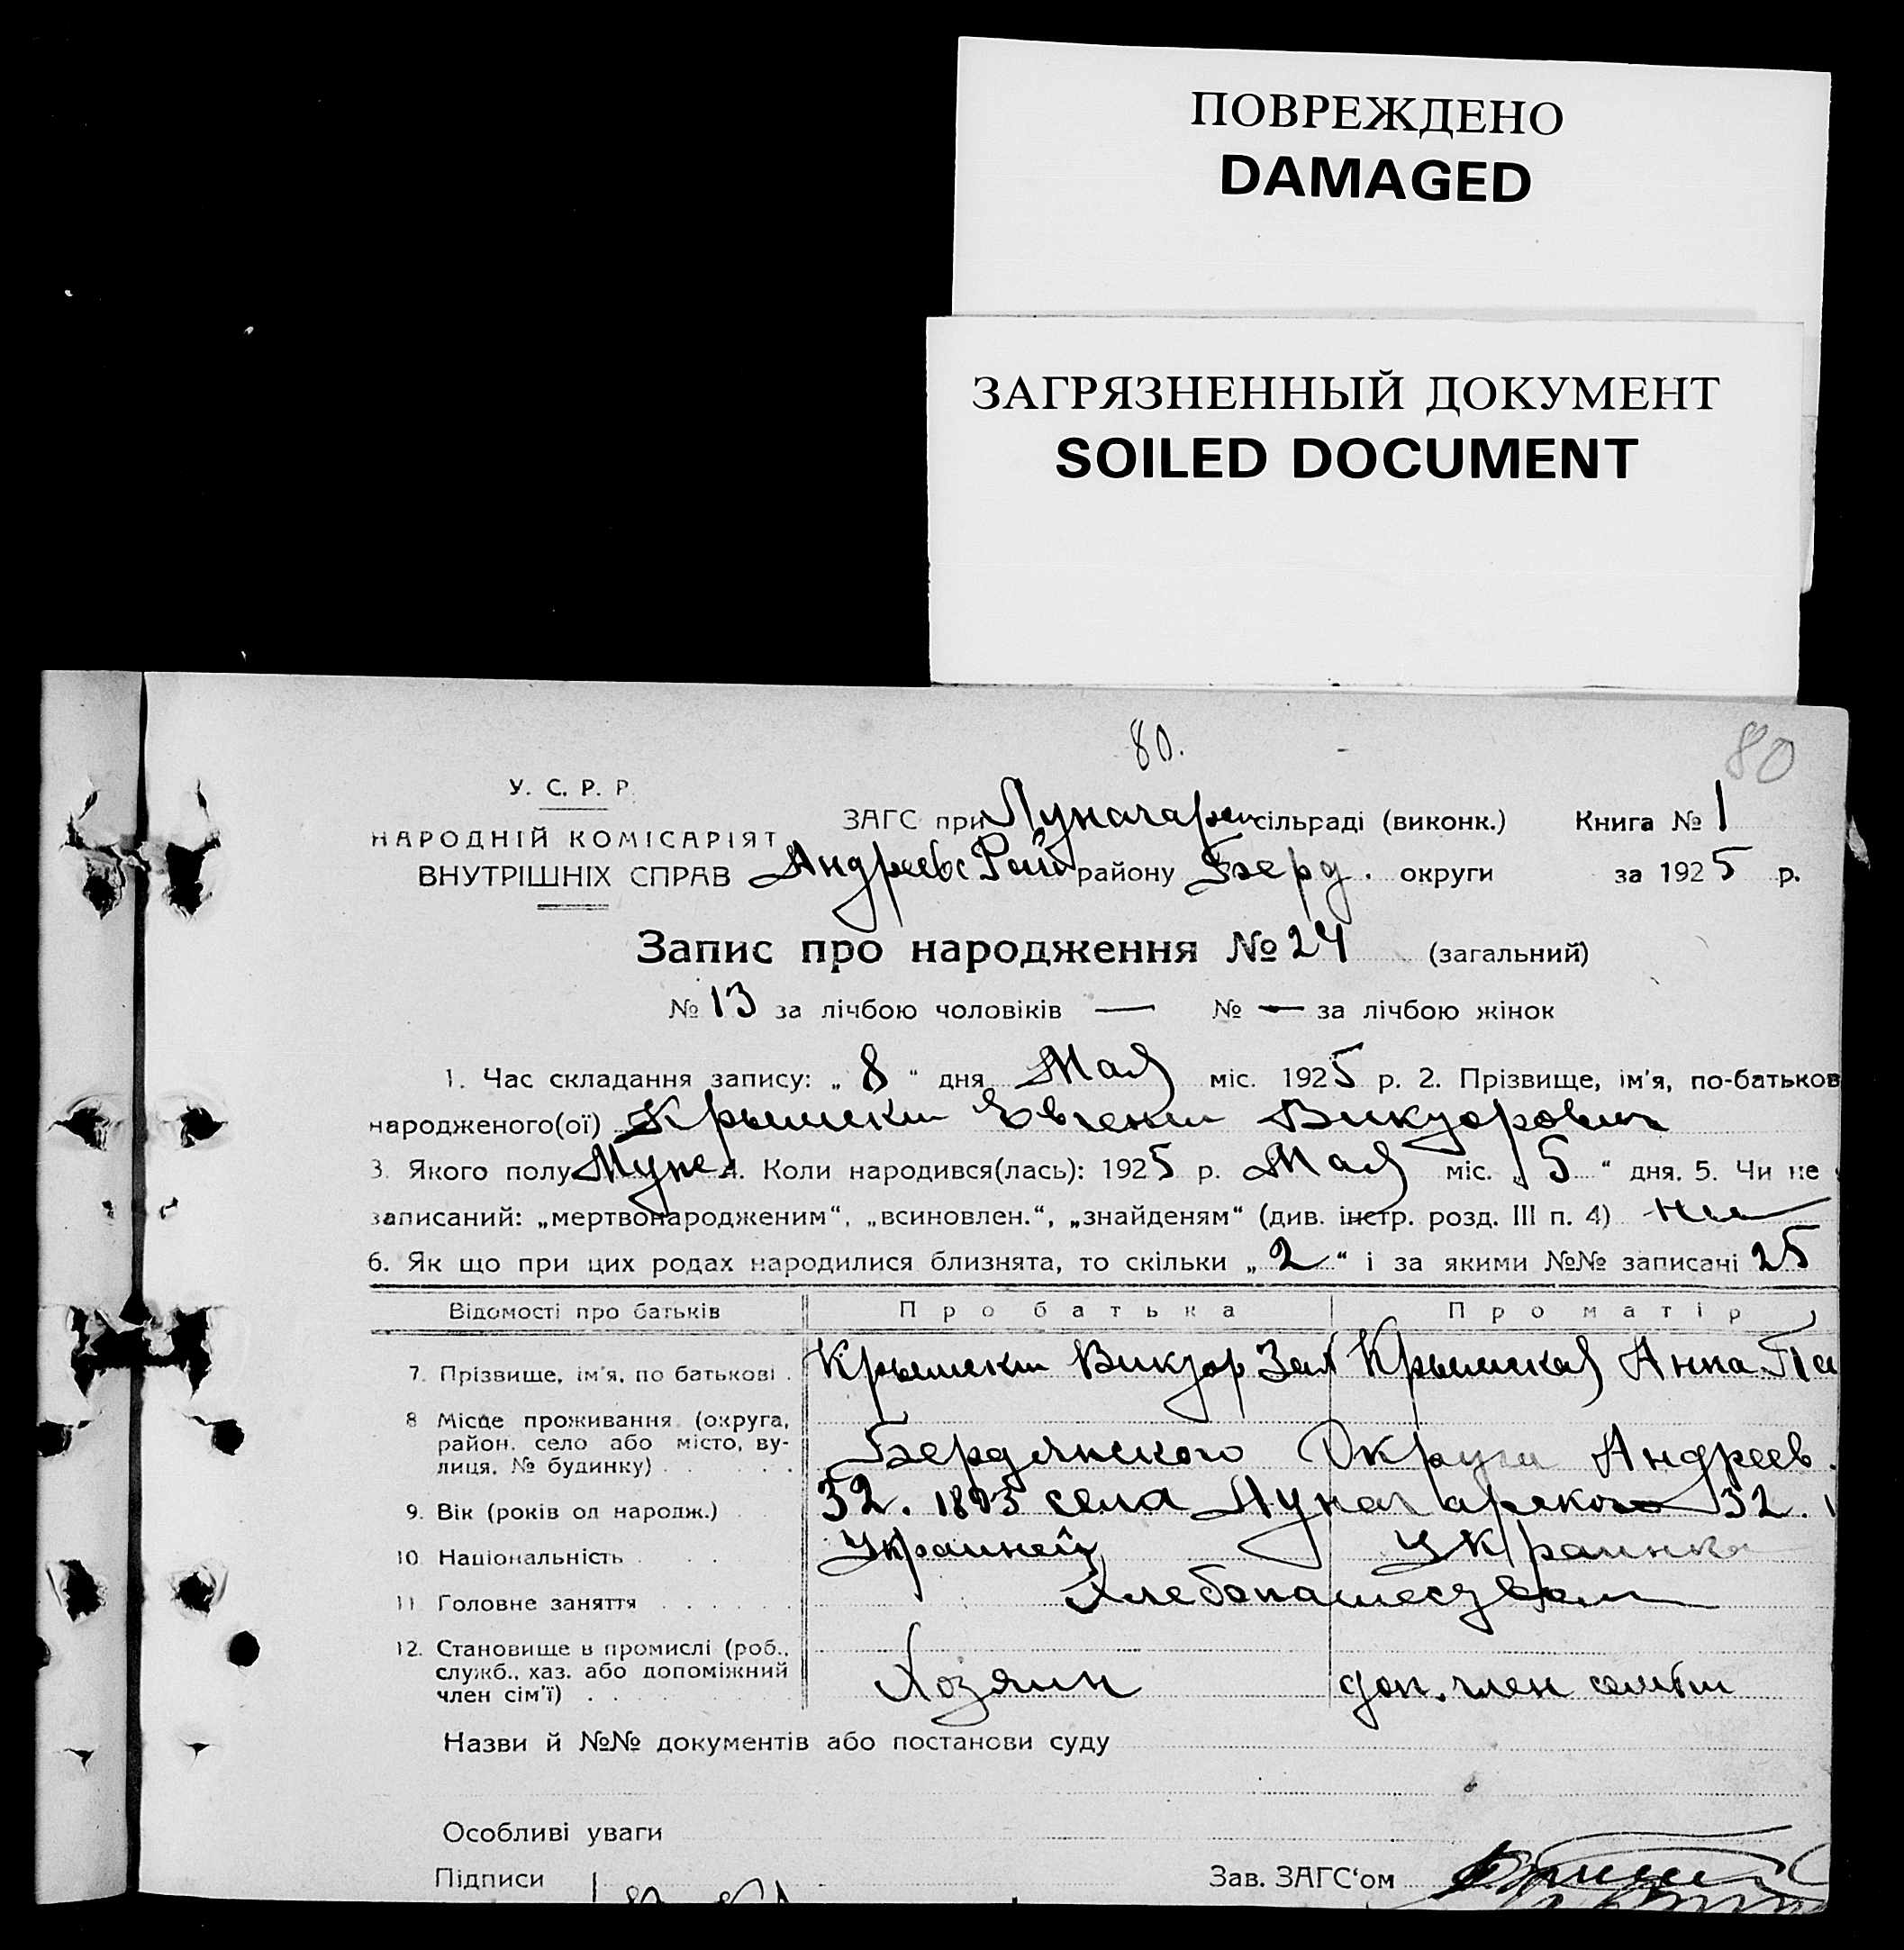 ПОВРЕЖДЕНО
DAMAGED
ЗАГРЯЗНЕННЫЙ ДОКУМЕНТ
SOILED DOCUMENT
80.
80
У. С. Р. Р.
НАРОДНІЙ КОМІСАРІЯТ
ВНУТРІШНІХ СПРАВ
ЗАГС при Луначарск сільраді (виконк.) Книга № 1
Андреевс Рай району Берд. округи за 1925 р.
Запис про народження № 24 (загальний)
№ 13 за лічбою чоловіків — № — за лічбою жінок
1. Час складання запису: „ 8 “ дня Мая міс. 1925 р. 2. Прізвище, ім'я, по-батьков
народженого(ої) Крымски Евгени Викторович
3. Якого полу Муже 4. Коли народився(лась): 1925 р. Мая міс. „ 5 “ дня. 5. Чи не
записаний: „мертвонародженим“, „всиновлен.“, „знайденям“ (див. інстр. розд. III п. 4)
6. Як що при цих родах народилися близнята, то скільки „ 2 “ і за якими №№ записані 25
Відомості про батьків Про батька Про матір
7. Прізвище, ім'я, по батькові . Крымски Виктор Зах Крымская Анна Па
8 Місце проживання (округа,
район, село або місто, ву-
лиця, № будинку) . . . . Бердянского Округа Андреев.
9. Вік (років од народж.) . . 32. 1893 села Луначарского 32. 1
10. Національність . . . . Украинец Украинка
11 Головне заняття . . . . . . Хлебопашеством
12. Становище в промислі (роб.,
служб., хаз. або допоміжний
член сім'ї) . . . . . Хозяин доп. член семьи
Назви й №№ документів або постанови суду
Особливі уваги
Підписи Зав. ЗАГС'ом